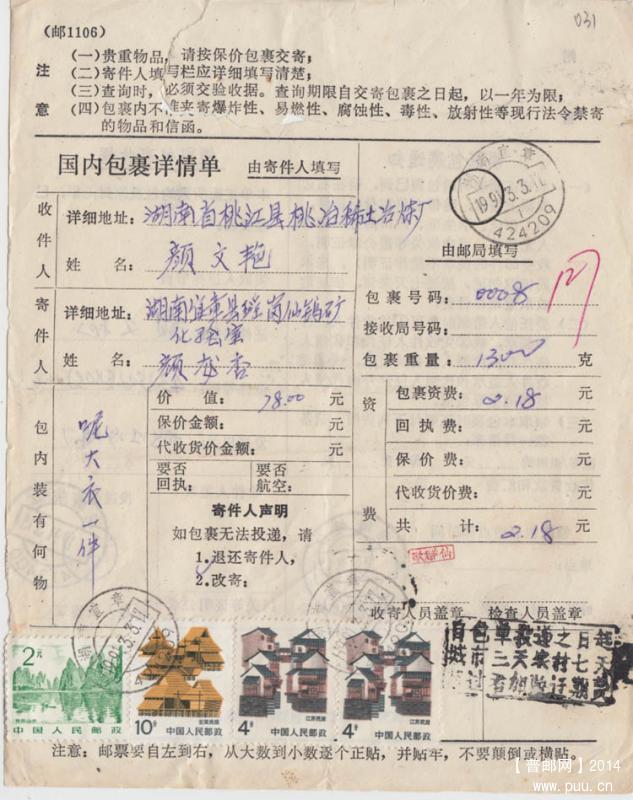 031
(邮1106)
注意
(一)贵重物品，请按保价包裹交寄；
(二)寄件人填写栏应详细填写清楚；
(三)查询时，必须交验收据。查询期限自交寄包裹之日起，以一年为限；
(四)包裹内不准夹寄爆炸性、易燃性、腐蚀性、毒性、放射性等现行法令禁寄
的物品和信函。
国内包裹详情单 由寄件人填写
收件人
详细地址：湖南省桃江县桃冶稀土冶炼厂
姓名：颜文艳
寄件人
详细地址：湖南宜章县瑶岗仙钨矿
化验室
姓名：颜
湖南宜章
1991.3.3.12
1
424209
由邮局填写
包裹号码：
接收局号码：
包裹重量：1300克
包内装有何物
呢大衣一件
价值：78.00元
保价金额：元
代收货价金额：元
要否回执：
要否航空：
寄件人声明
如包裹无法投递，请
1.退还寄件人，
2.改寄：
资费
包裹资费：2.18元
回执费：元
保价费：元
代收货价费：元
共计：2.18元
收寄人员盖章 检查人员盖章
湖南宜章
424209
2元
中国人民邮政
10分
中国人民邮政
4分
江苏民居
中国人民邮政
4分
江苏民居
中国人民邮政
注意：邮票要自左到右，从大数到小数逐个正贴，并贴牢，不要颠倒或横贴。
【普邮网】2014
www.puu.cn